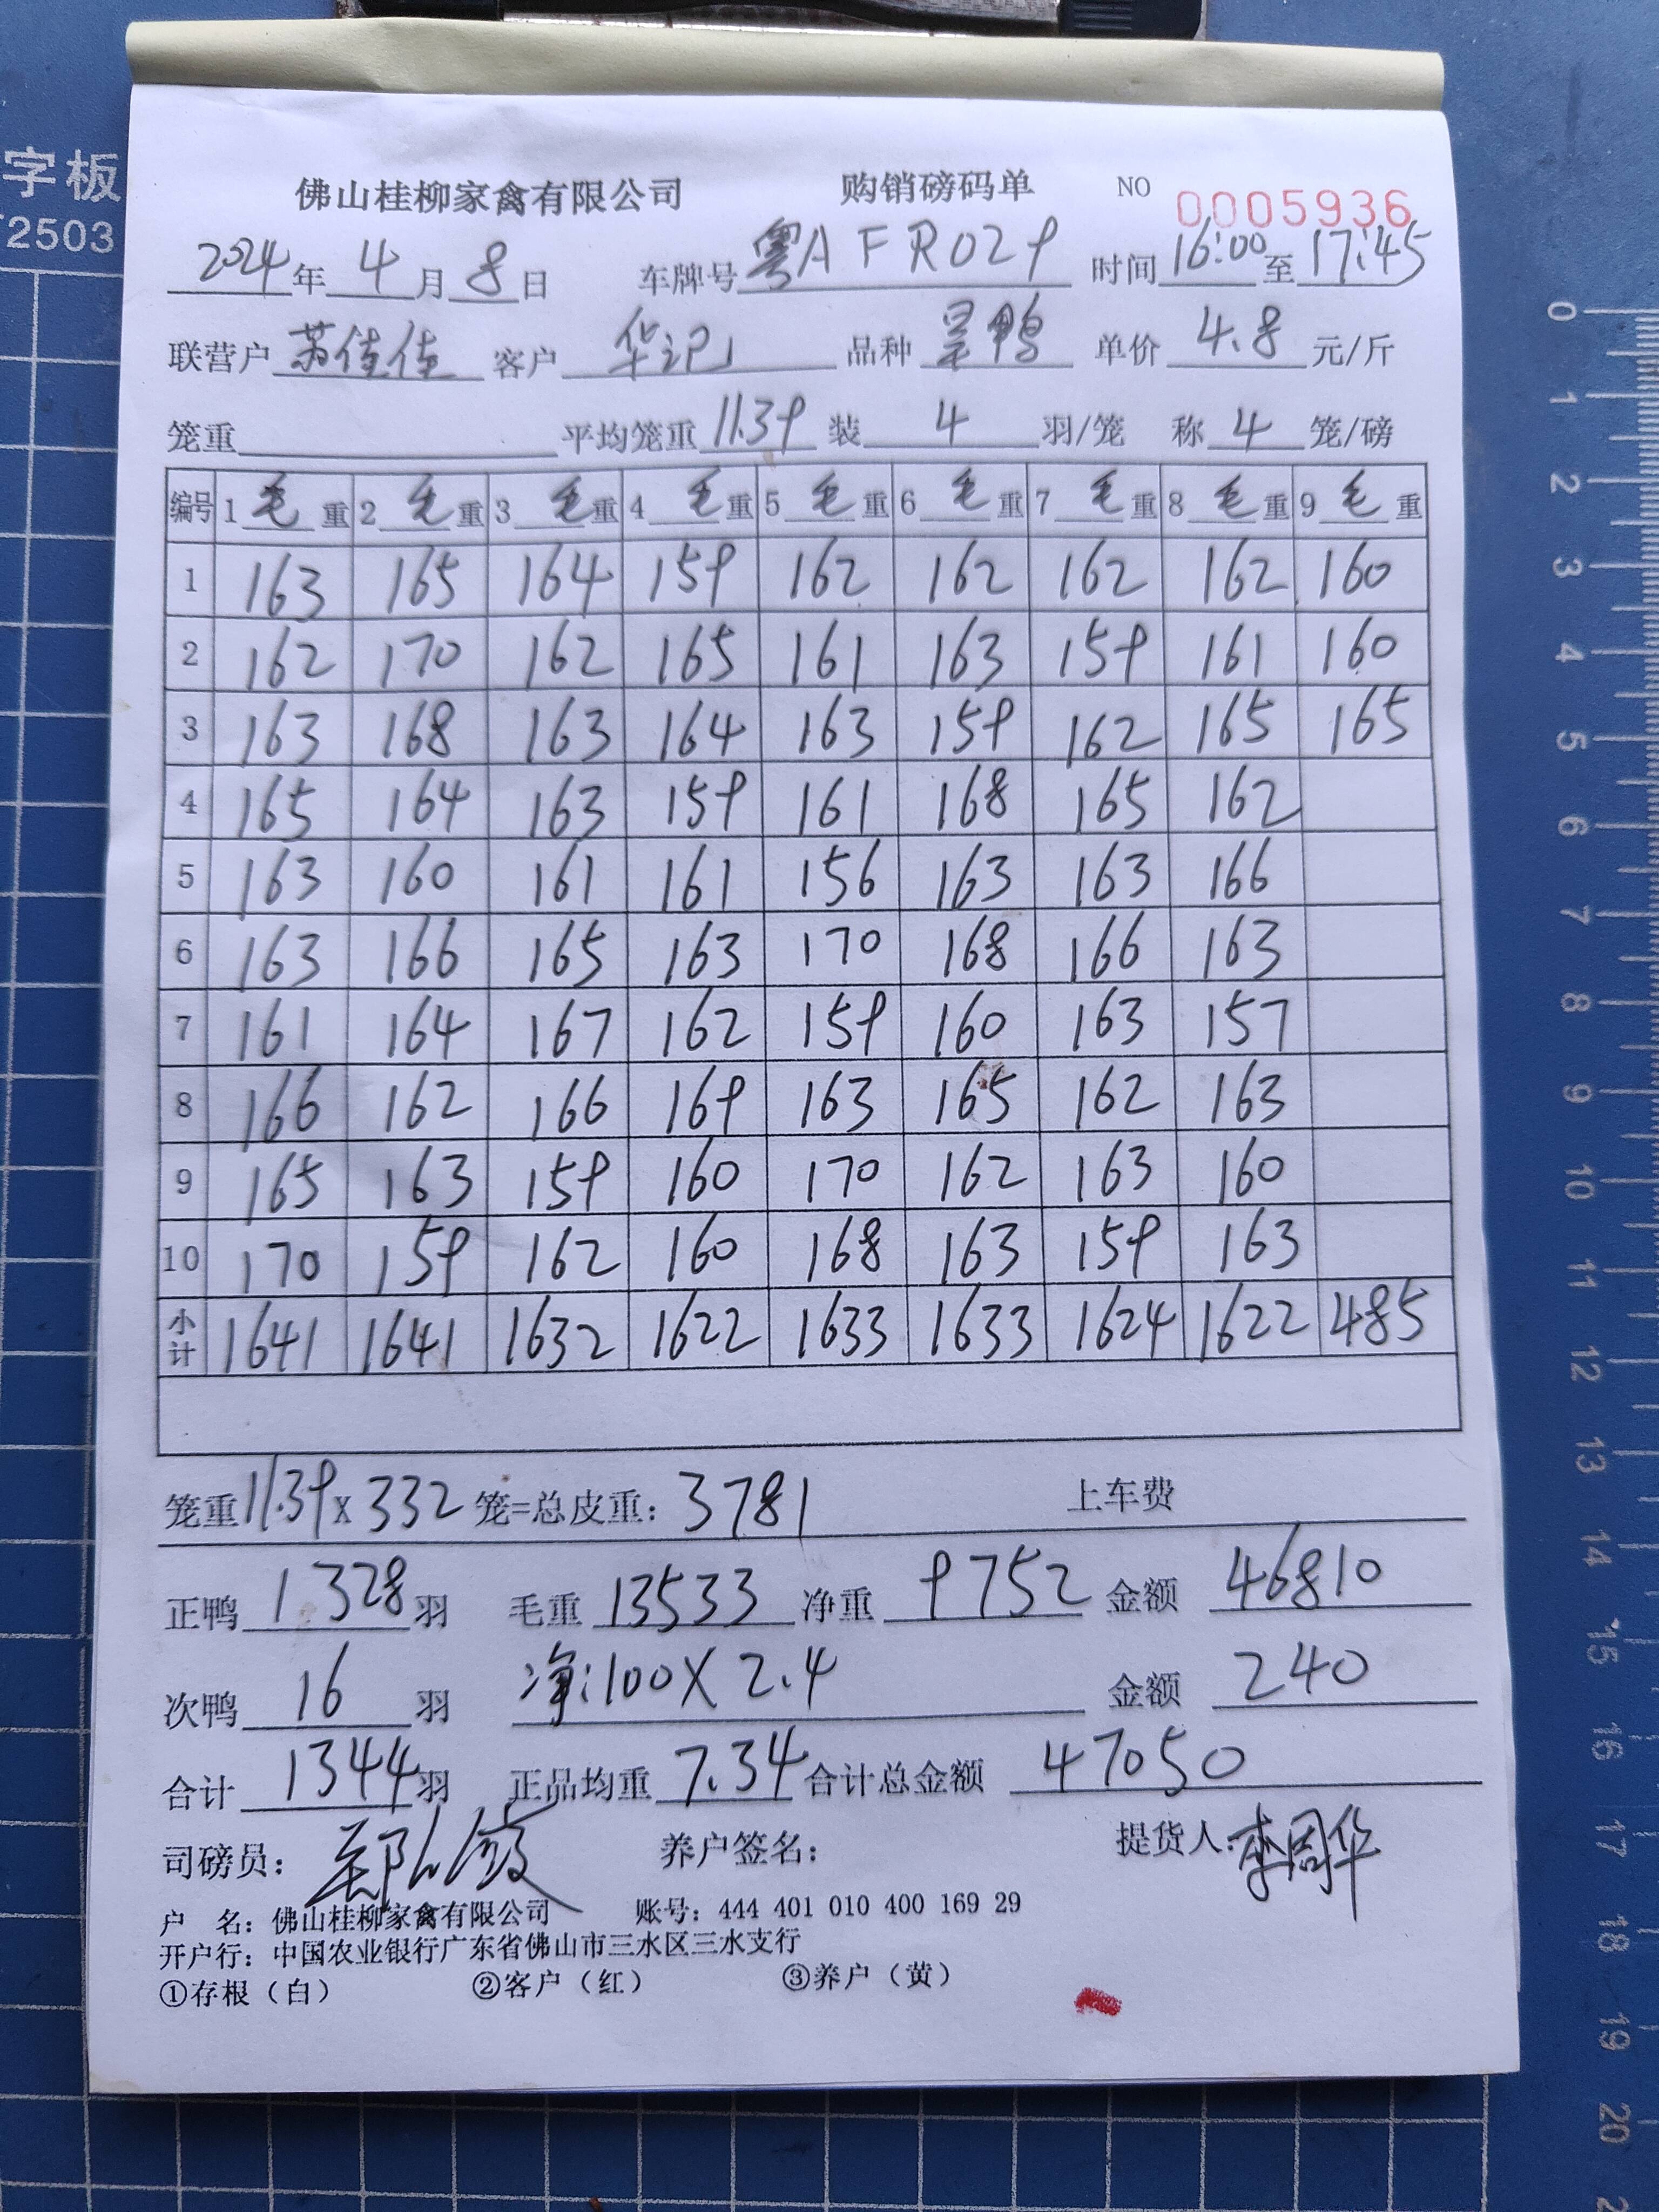 字板
T2503
佛山桂柳家禽有限公司 购销磅码单 NO 0005936
2024年4月8日 车牌号粤AFR029 时间16:00至17:45
联营户 苏佳佳 客户 华记 品种 呈鸭 单价 4.8 元/斤
笼重 平均笼重 11.39 装 4 羽/笼 称 4 笼/磅
编号 1毛重 2毛重 3毛重 4毛重 5毛重 6毛重 7毛重 8毛重 9毛重
1 163 165 164 159 162 162 162 162 160
2 162 170 162 165 161 163 159 161 160
3 163 168 163 164 163 159 162 165 165
4 165 164 163 159 161 168 165 162
5 163 160 161 161 156 163 163 166
6 163 166 165 163 170 168 166 163
7 161 164 167 162 159 160 163 157
8 166 162 166 169 163 165 162 163
9 165 163 159 160 170 162 163 160
10 170 159 162 160 168 163 159 163
小计 1641 1641 1632 1622 1633 1633 1624 1622 485
笼重11.39x332笼=总皮重:3781 上车费
正鸭 1.328 羽 毛重 13533 净重 9752 金额 46810
次鸭 16 羽 净:100X2.4 金额 240
合计 1344 羽 正品均重 7.34 合计总金额 47050
司磅员: 养户签名: 提货人:李周华
户 名:佛山桂柳家禽有限公司 账号:444 401 010 400 169 29
开户行:中国农业银行广东省佛山市三水区三水支行
①存根(白) ②客户(红) ③养户(黄)
0
1
2
3
4
5
6
7
8
9
10
11
12
13
14
15
16
17
18
19
20